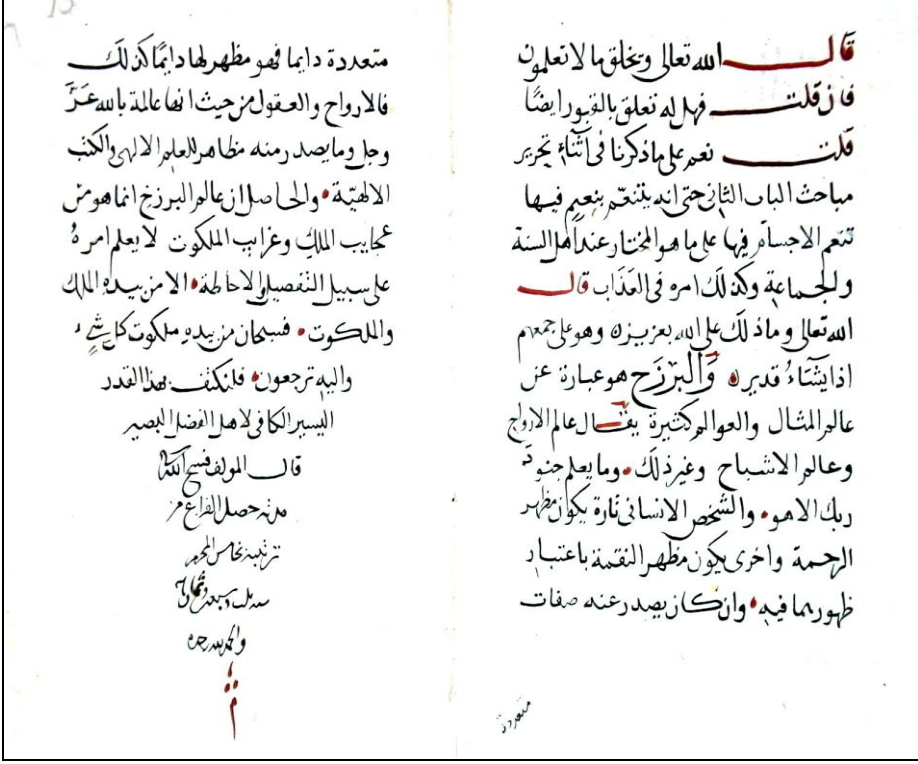 قال الله تعالى ويخلق ما لا تعلمون
فان قلت فهل له تعلق بالقبور ايضًا
قلت نعم على ما ذكرنا فى اثناء تحرير
مباحث الباب الثانى حتى انه يتنعّم بنعيم فيها
تنعم الاجسام فيها على ما هو المختار عند اهل السنة
والجماعة وكذلك امره فى العذاب قال
الله تعالى وما ذلك على الله بعزيز وهو على جمعهم
اذا يشاء قدير والبرزخ هو عبارة عن
عالم المثال والعوالم كثيرة يقال عالم الارواح
وعالم الاشباح وغير ذلك وما يعلم جنود
ربك الا هو والشخص الانسانى تارة يكون مظهر
الرحمة واخرى يكون مظهر النقمة باعتبار
ظهورهما فيه وان كان يصدر عنه صفات
متعددة
متعددة دايما فهو مظهر لها دايمًا كذلك
فالارواح والعقول من حيث انها عالمة بالله عَزَّ
وجل وما يصدر منه مظاهر للعلم الالهى والكتب
الالهيّة والحاصل ان عالم البرزخ انما هو من
عجايب الملك وغرايب الملكوت لا يعلم امره
على سبيل التفصيل والاحاطة الا من بيده الملك
والملكوت فسبحان من بيده ملكوت كل شىء
واليه ترجعون فلنكتف بهذا القدر
اليسير الكافى لاهل الفضل البصير
قال المولف فسح الله
مدته حصل الفراغ من
ترتيبه خامس المحرم
سنة ثلث وسبعين
والحمد لله وحده